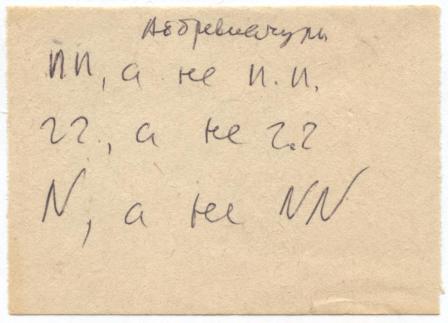 Аббревиатуры
пп, а не п.п.
гг., а не г.г
N, а не NN